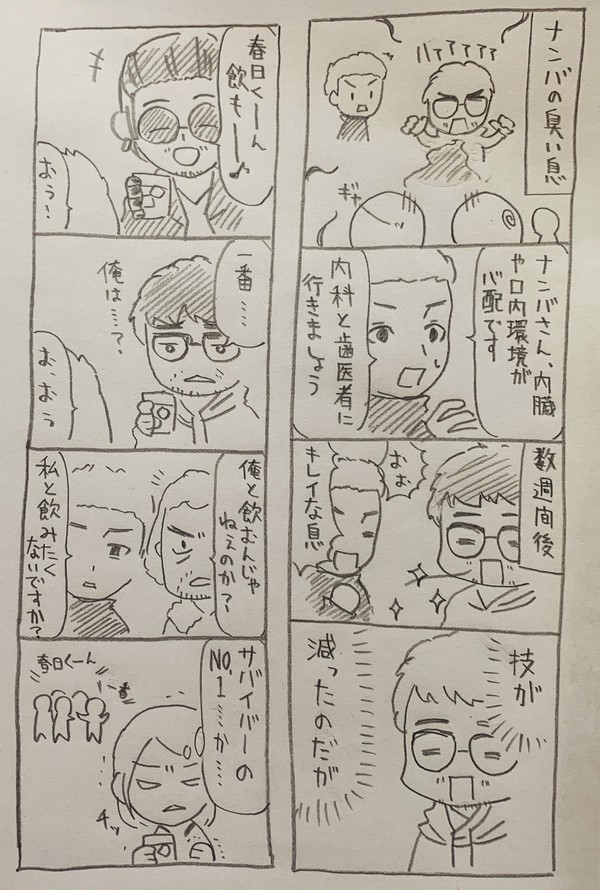 ナンバの臭い息
ハァァァァァ
ギャ
ナンバさん、内臓
や口内環境が
心配です
内科と歯医者に
行きましょう
数週間後
おぉ
キレイな息
技が
減ったのだが
春日くーん
飲もー♪
おぅ…
一番……
俺は…?
お、おぅ
俺と飲むんじゃ
ねぇのか?
私と飲みたく
ないですか?
サバイバーの
NO.1……か……
春日くーん
一番
チッ